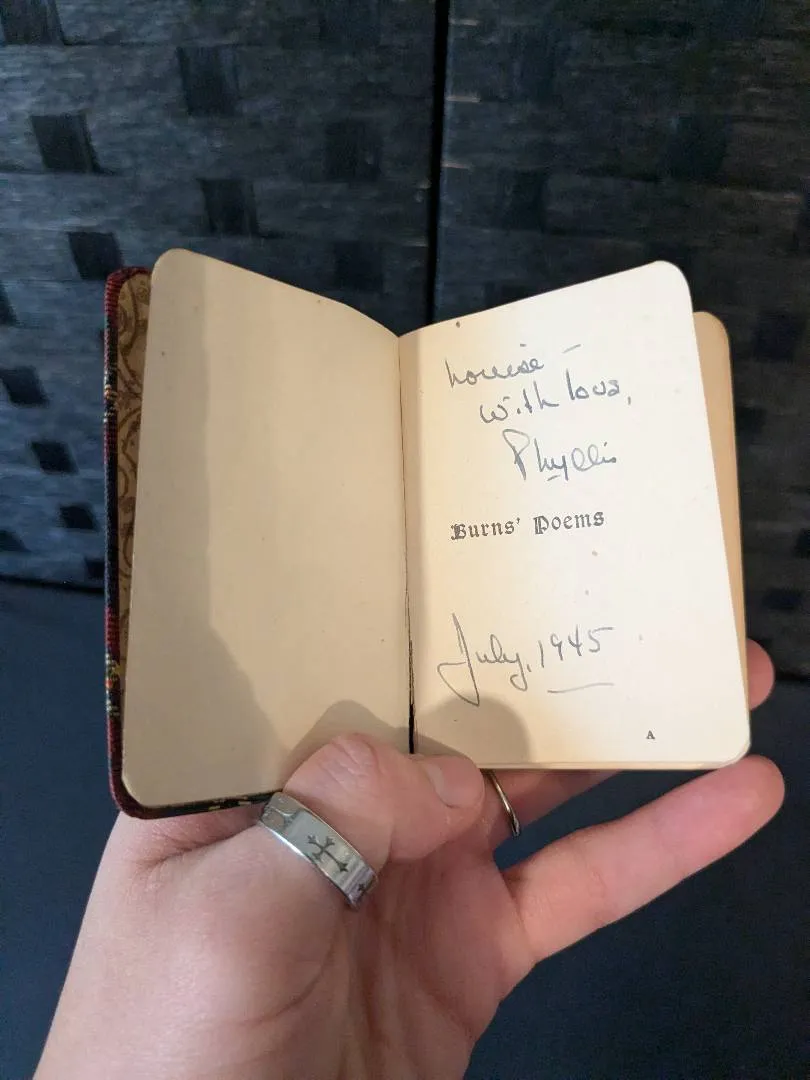 Louise –
with love,
Phyllis
Burns' Poems
July, 1945
A